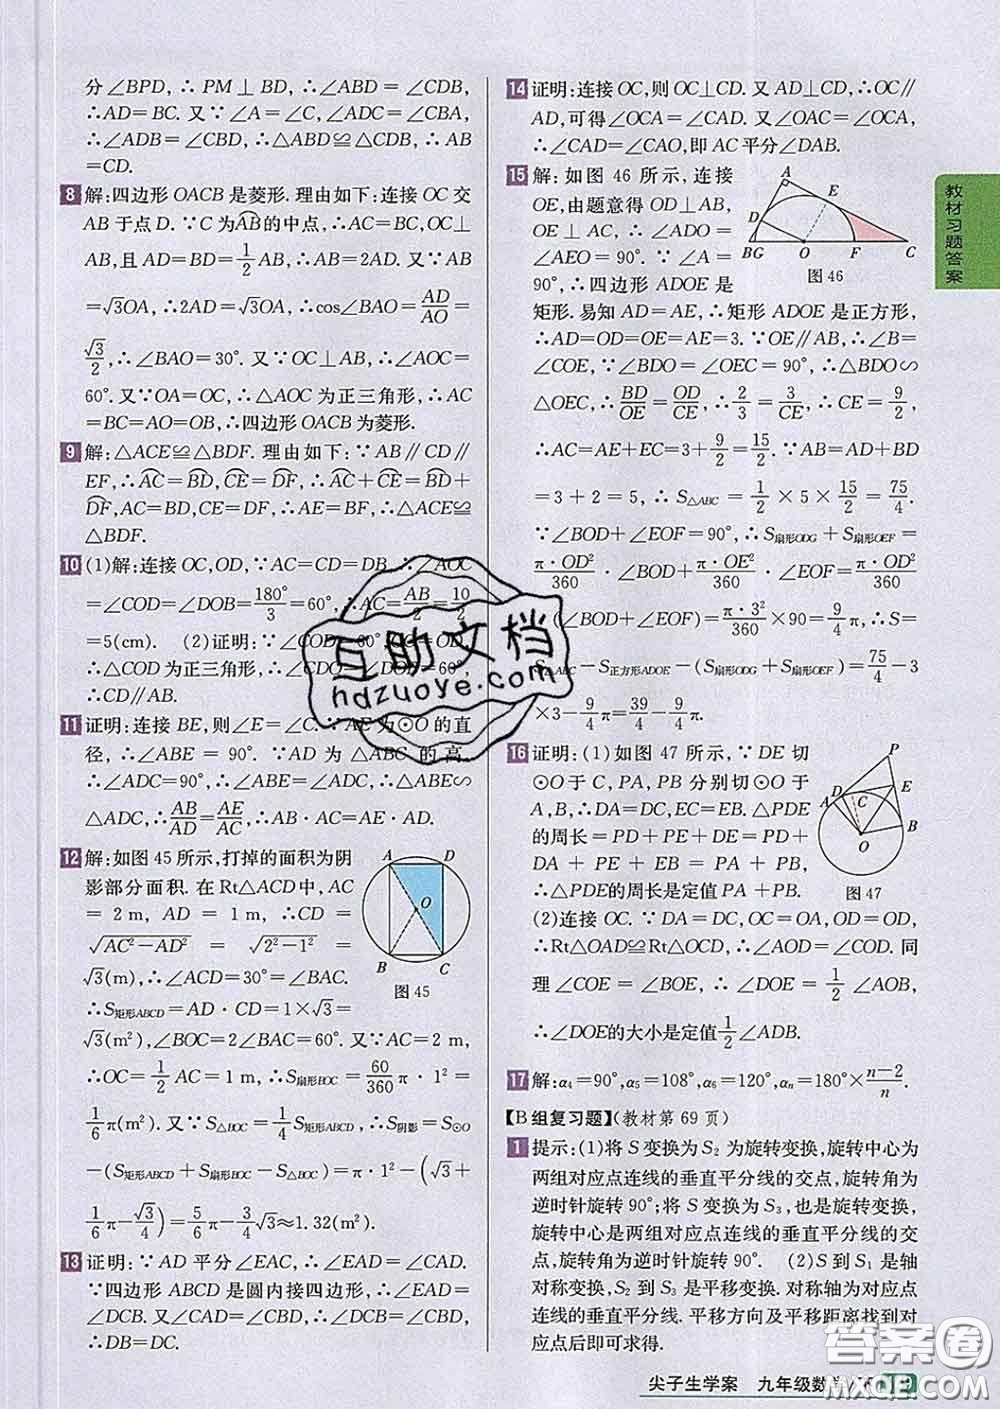 分∠BPD, ∴ PM⊥BD, ∴∠ABD=∠CDB,
∴AD=BC. 又∵∠A=∠C,∠ADC=∠CBA,
∴∠ADB=∠CBD, ∴△ABD≌△CDB, ∴AB
=CD.
8 解:四边形 OACB 是菱形. 理由如下:连接 OC 交
AB 于点 D. ∵C 为AB的中点,∴AC=BC,OC⊥
AB,且 AD=BD=1/2 AB,∴AB=2AD. 又∵AB
=√3OA,∴2AD=√3OA,∴cos∠BAO=AD/AO=
√3/2,∴∠BAO=30°. 又∵OC⊥AB,∴∠AOC=
60°. 又∵OA=OC,∴△AOC 为正三角形,∴AC
=BC=AO=OB,∴四边形 OACB 为菱形.
9 解:△ACE≌△BDF. 理由如下:∵AB∥CD∥
EF,∴AC=BD,CE=DF,∴AC+CE=BD+
DF,AC=BD,CE=DF,∴AE=BF,∴△ACE≌
△BDF.
10 (1)解:连接 OC,OD,∵AC=CD=DB,∴∠AOC
=∠COD=∠DOB=180°/3=60°,∴AC=AB/2=10/2
=5(cm). (2)证明:∵∠COD=60°
∴△COD 为正三角形,∴∠CDO=∠DOB=60°,
∴CD∥AB.
11 证明:连接 BE,则∠E=∠C.∵AE 为⊙O 的直
径,∴∠ABE = 90°. ∵AD 为 △ABC 的高,
∴∠ADC=90°,∴∠ABE=∠ADC,∴△ABE∽
△ADC,∴AB/AD=AE/AC,∴AB·AC=AE·AD.
12 解:如图 45 所示,打掉的面积为阴
影部分面积. 在 Rt△ACD 中,AC
=2 m, AD = 1 m, ∴CD =
√(AC²−AD²) = √(2²−1²) =
√3(m),∴∠ACD=30°=∠BAC.
A D O B C
图 45
∴S矩形ABCD=AD·CD=1×√3=
√3(m²),∠BOC=2∠BAC=60°. ∵AC=2 m,
∴OC=1/2 AC=1 m,∴S扇形BOC=60/360π·1²=
1/6π(m²). 又∵S△BOC=√3/4 m²,∴S阴影=S⊙O
−(S矩形ABCD+S扇形BOC−S△BOC)=π·1²−(√3+
1/6π−√3/4)=5/6π−3/4√3≈1.32(m²).
13 证明:∵ AD 平分∠EAC,∴∠EAD=∠CAD.
∵四边形 ABCD 是圆内接四边形,∴∠EAD=
∠DCB. 又∵∠CAD=∠CBD,∴∠DCB=∠CBD,
∴DB=DC.
14 证明:连接 OC,则 OC⊥CD. 又 AD⊥CD,∴OC∥
AD,可得∠OCA=∠CAD. 又∠OAC=∠OCA,
∴∠CAD=∠CAO,即 AC 平分∠DAB.
15 解: 如图 46 所示, 连接
OE,由题意得 OD⊥AB,
OE⊥AC, ∴ ∠ADO =
∠AEO = 90°. ∵ ∠A =
90°,∴四边形 ADOE 是
A E D BG O F C
图 46
矩形. 易知 AD=AE,∴矩形 ADOE 是正方形,
∴AD=OD=OE=AE=3. ∵OE∥AB,∴∠B=
∠COE, ∵∠BDO=∠OEC=90°, ∴△BDO∽
△OEC,∴BD/OE=OD/CE,∴2/3=3/CE,∴CE=9/2,
∴AC=AE+EC=3+9/2=15/2. ∵AB=AD+BD
=3+2=5, ∴S△ABC=1/2×5×15/2=75/4.
∵∠BOD+∠EOF=90°,∴S扇形ODG+S扇形OEF=
π·OD²/360·∠BOD+π·OE²/360·∠EOF=π·OD²/360
(∠BOD+∠EOF)=π·3²/360×90=9/4π,∴S=
S△ABC−S正方形ADOE−(S扇形ODG+S扇形OEF)=75/4−3
×3−9/4π=39/4−9/4π.
16 证明:(1)如图 47 所示,∵DE 切
⊙O 于 C,PA,PB 分别切⊙O 于
A,B,∴DA=DC,EC=EB. △PDE
的周长=PD+PE+DE=PD+
DA + PE + EB = PA + PB,
∴△PDE的周长是定值 PA+PB.
P D E A C B O
图 47
(2)连接 OC. ∵DA=DC,OA=OC,OD=OD,
∴Rt△OAD≌Rt△OCD,∴∠AOD=∠COD. 同
理 ∠COE = ∠BOE, ∴∠DOE = 1/2 ∠AOB,
∴∠DOE的大小是定值1/2∠ADB.
17 解:α₄=90°,α₅=108°,α₆=120°,αₙ=180°×(n−2)/n.
【B组复习题】(教材第 69 页)
1 提示:(1)将 S 变换为 S₂ 为旋转变换,旋转中心为
两组对应点连线的垂直平分线的交点,旋转角为
逆时针旋转 90°;将 S 变换为 S₃,也是旋转变换,
旋转中心是两组对应点连线的垂直平分线的交
点,旋转角为逆时针旋转 90°. (2)S 到 S₁ 是轴
对称变换,S₂ 到 S₃ 是平移变换. 对称轴为对应点
连线的垂直平分线. 平移方向及平移距离找到对
应点后即可求得.
教材习题答案
尖子生学案 九年级数学
互助文档
hdzuoye.com
答案圈
MXQE.COM